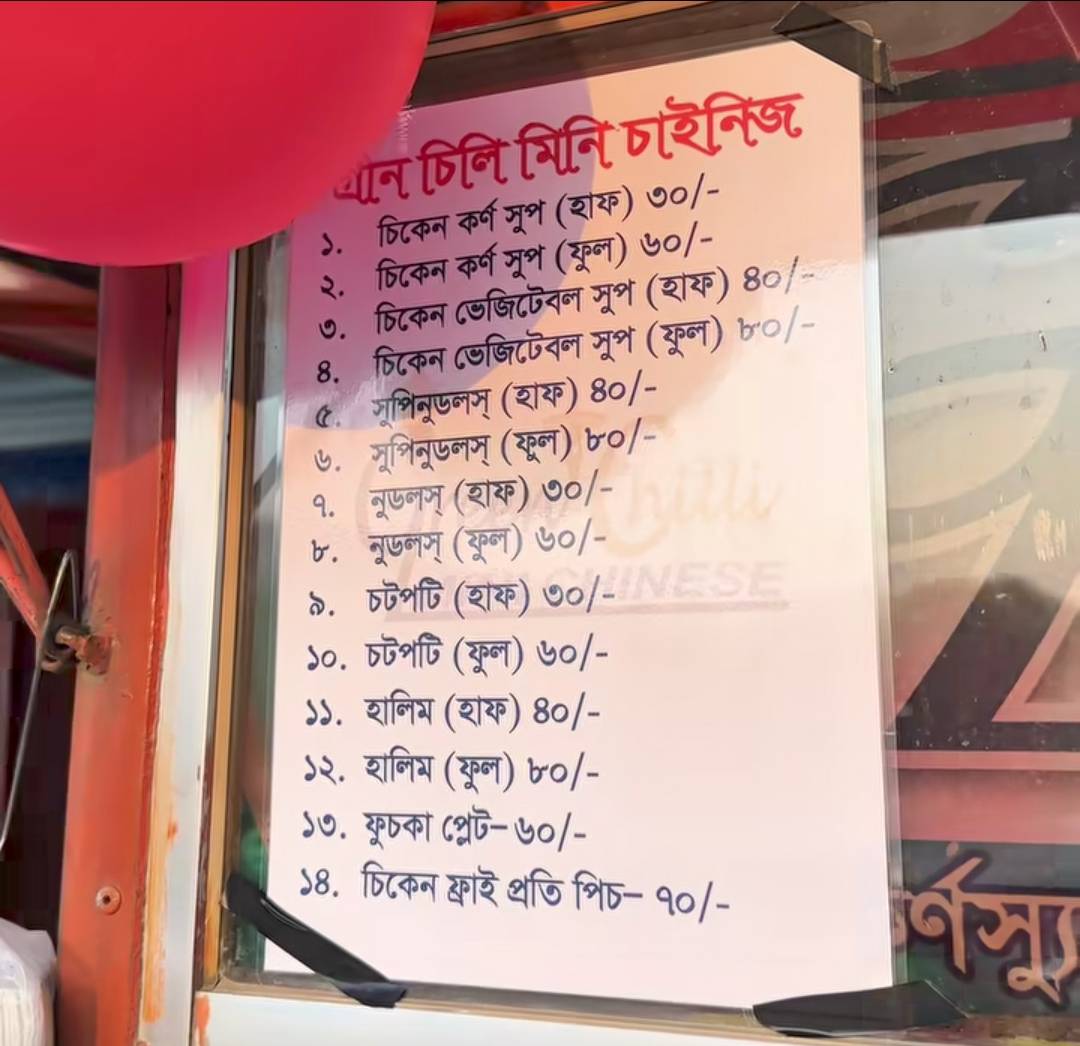 গ্রীন চিলি মিনি চাইনিজ
১. চিকেন কর্ণ সুপ (হাফ) ৩০/-
২. চিকেন কর্ণ সুপ (ফুল) ৬০/-
৩. চিকেন ভেজিটেবল সুপ (হাফ) ৪০/-
৪. চিকেন ভেজিটেবল সুপ (ফুল) ৮০/-
৫. সুপিনুডলস্ (হাফ) ৪০/-
৬. সুপিনুডলস্ (ফুল) ৮০/-
৭. নুডলস্ (হাফ) ৩০/-
৮. নুডলস্ (ফুল) ৬০/-
৯. চটপটি (হাফ) ৩০/-
১০. চটপটি (ফুল) ৬০/-
১১. হালিম (হাফ) ৪০/-
১২. হালিম (ফুল) ৮০/-
১৩. ফুচকা প্লেট-৬০/-
১৪. চিকেন ফ্রাই প্রতি পিচ- ৭০/-
Chilli
CHINESE